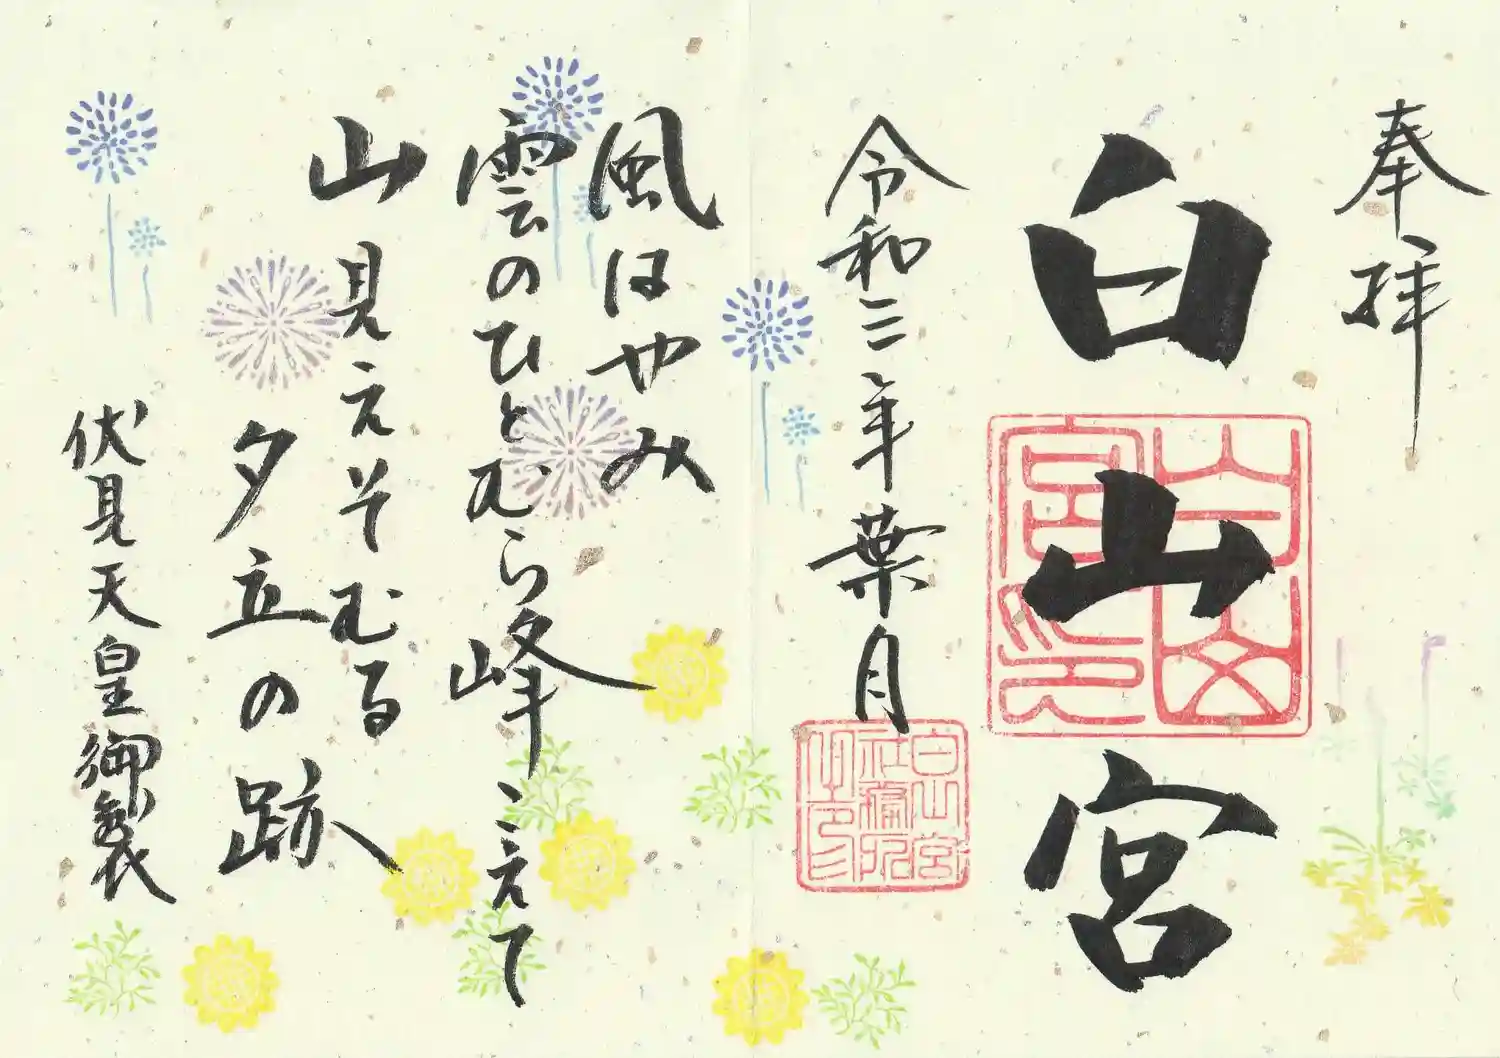 奉拝
白山宮
令和三年葉月
風はやみ
雲のひとむら峰こえて
山見えそむる
夕立の跡
伏見天皇御製
白山宮印
白山宮
社務所